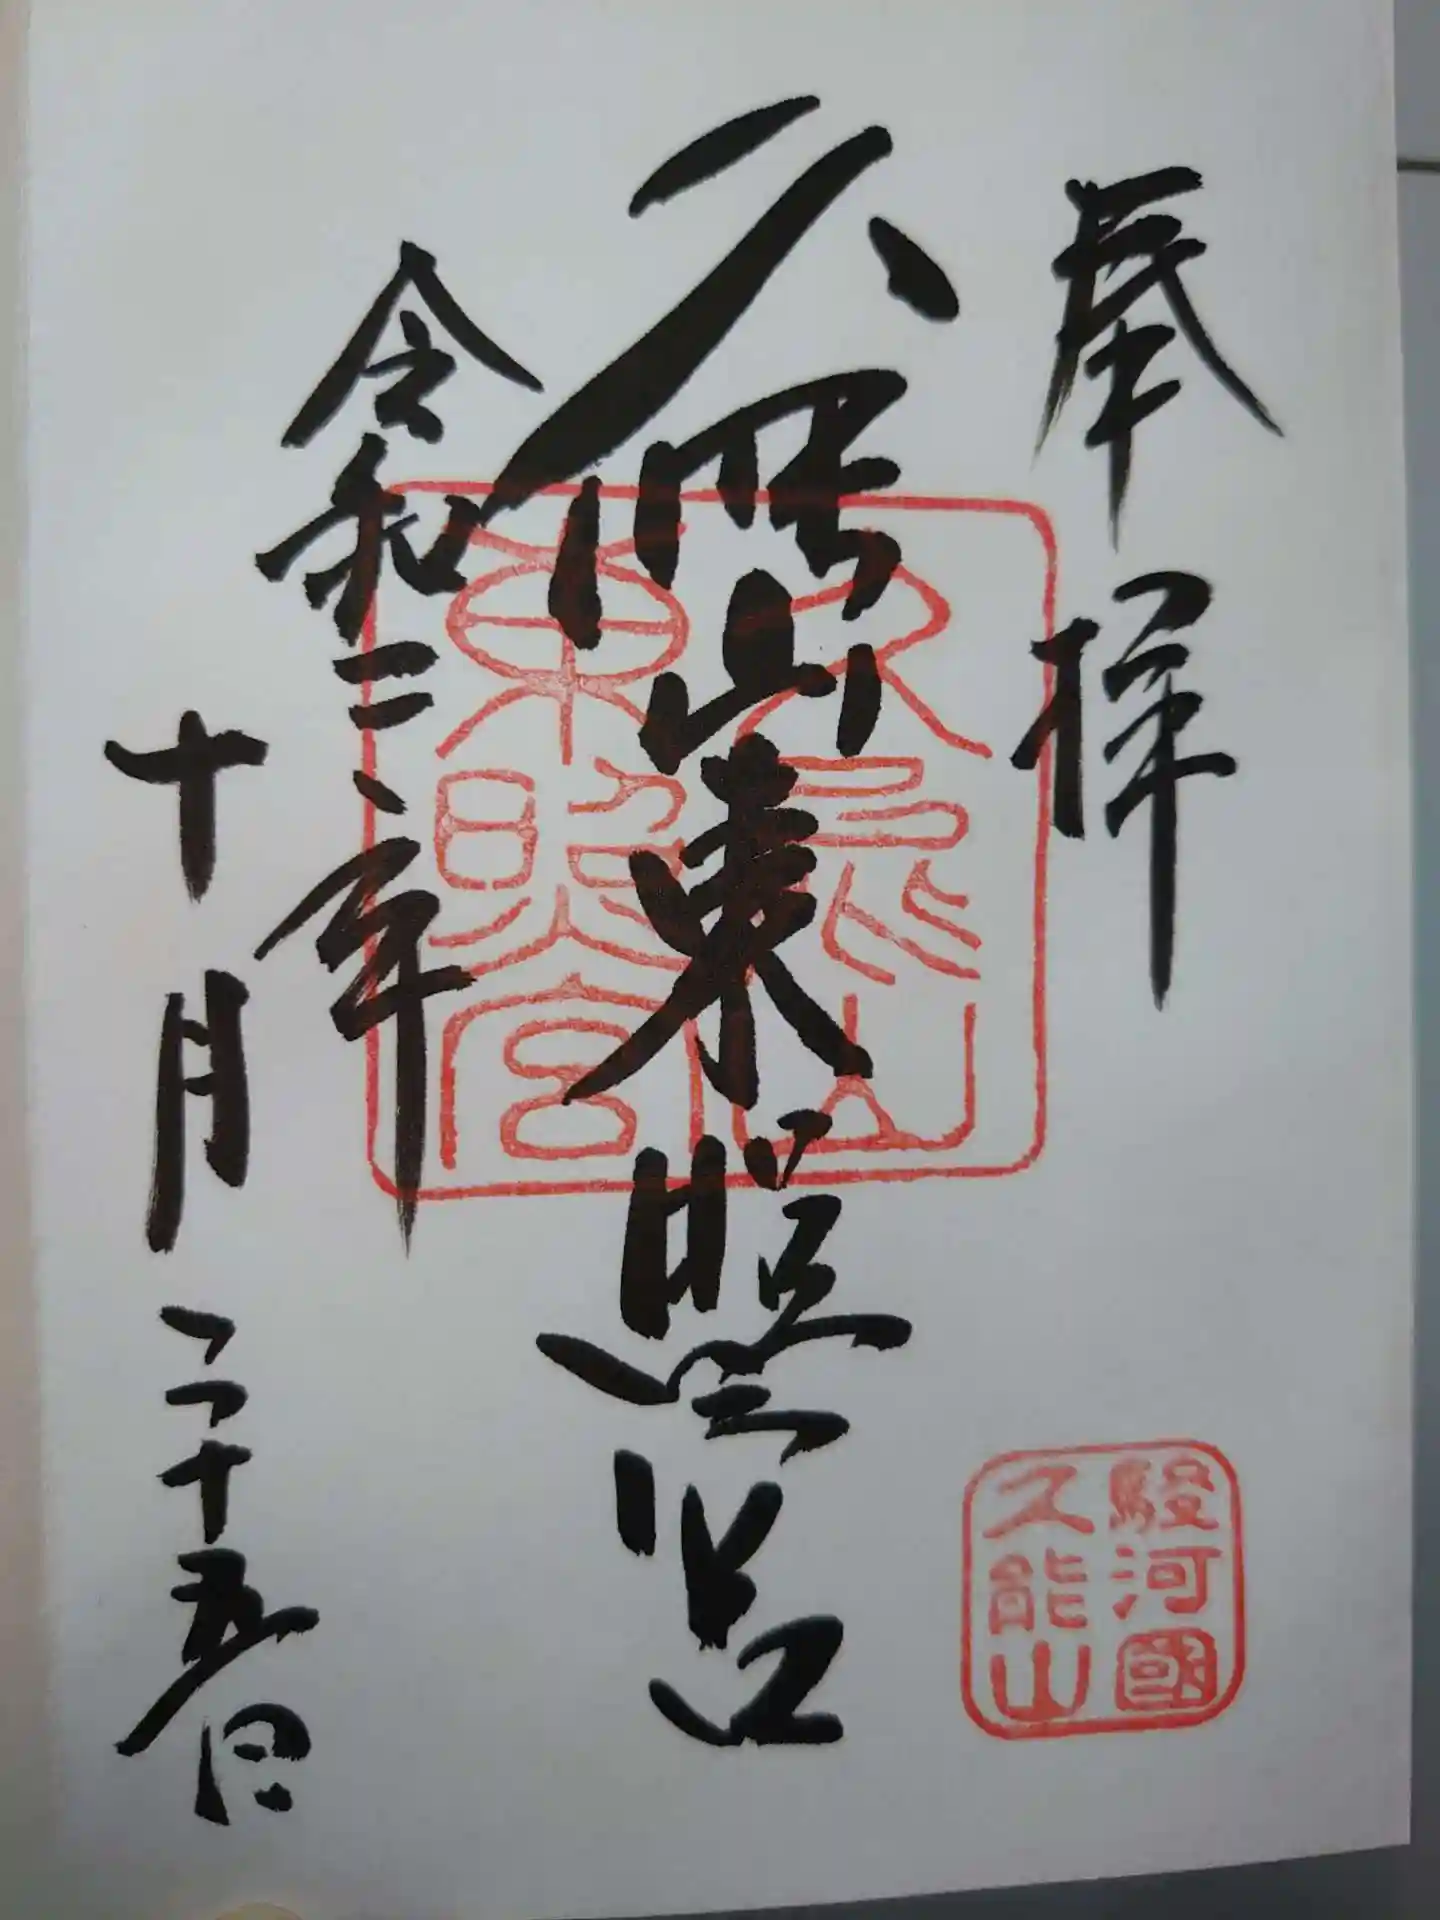 奉拝
久能山東照宮
令和三年
十月二十五日
久能山
東照宮
駿河國
久能山